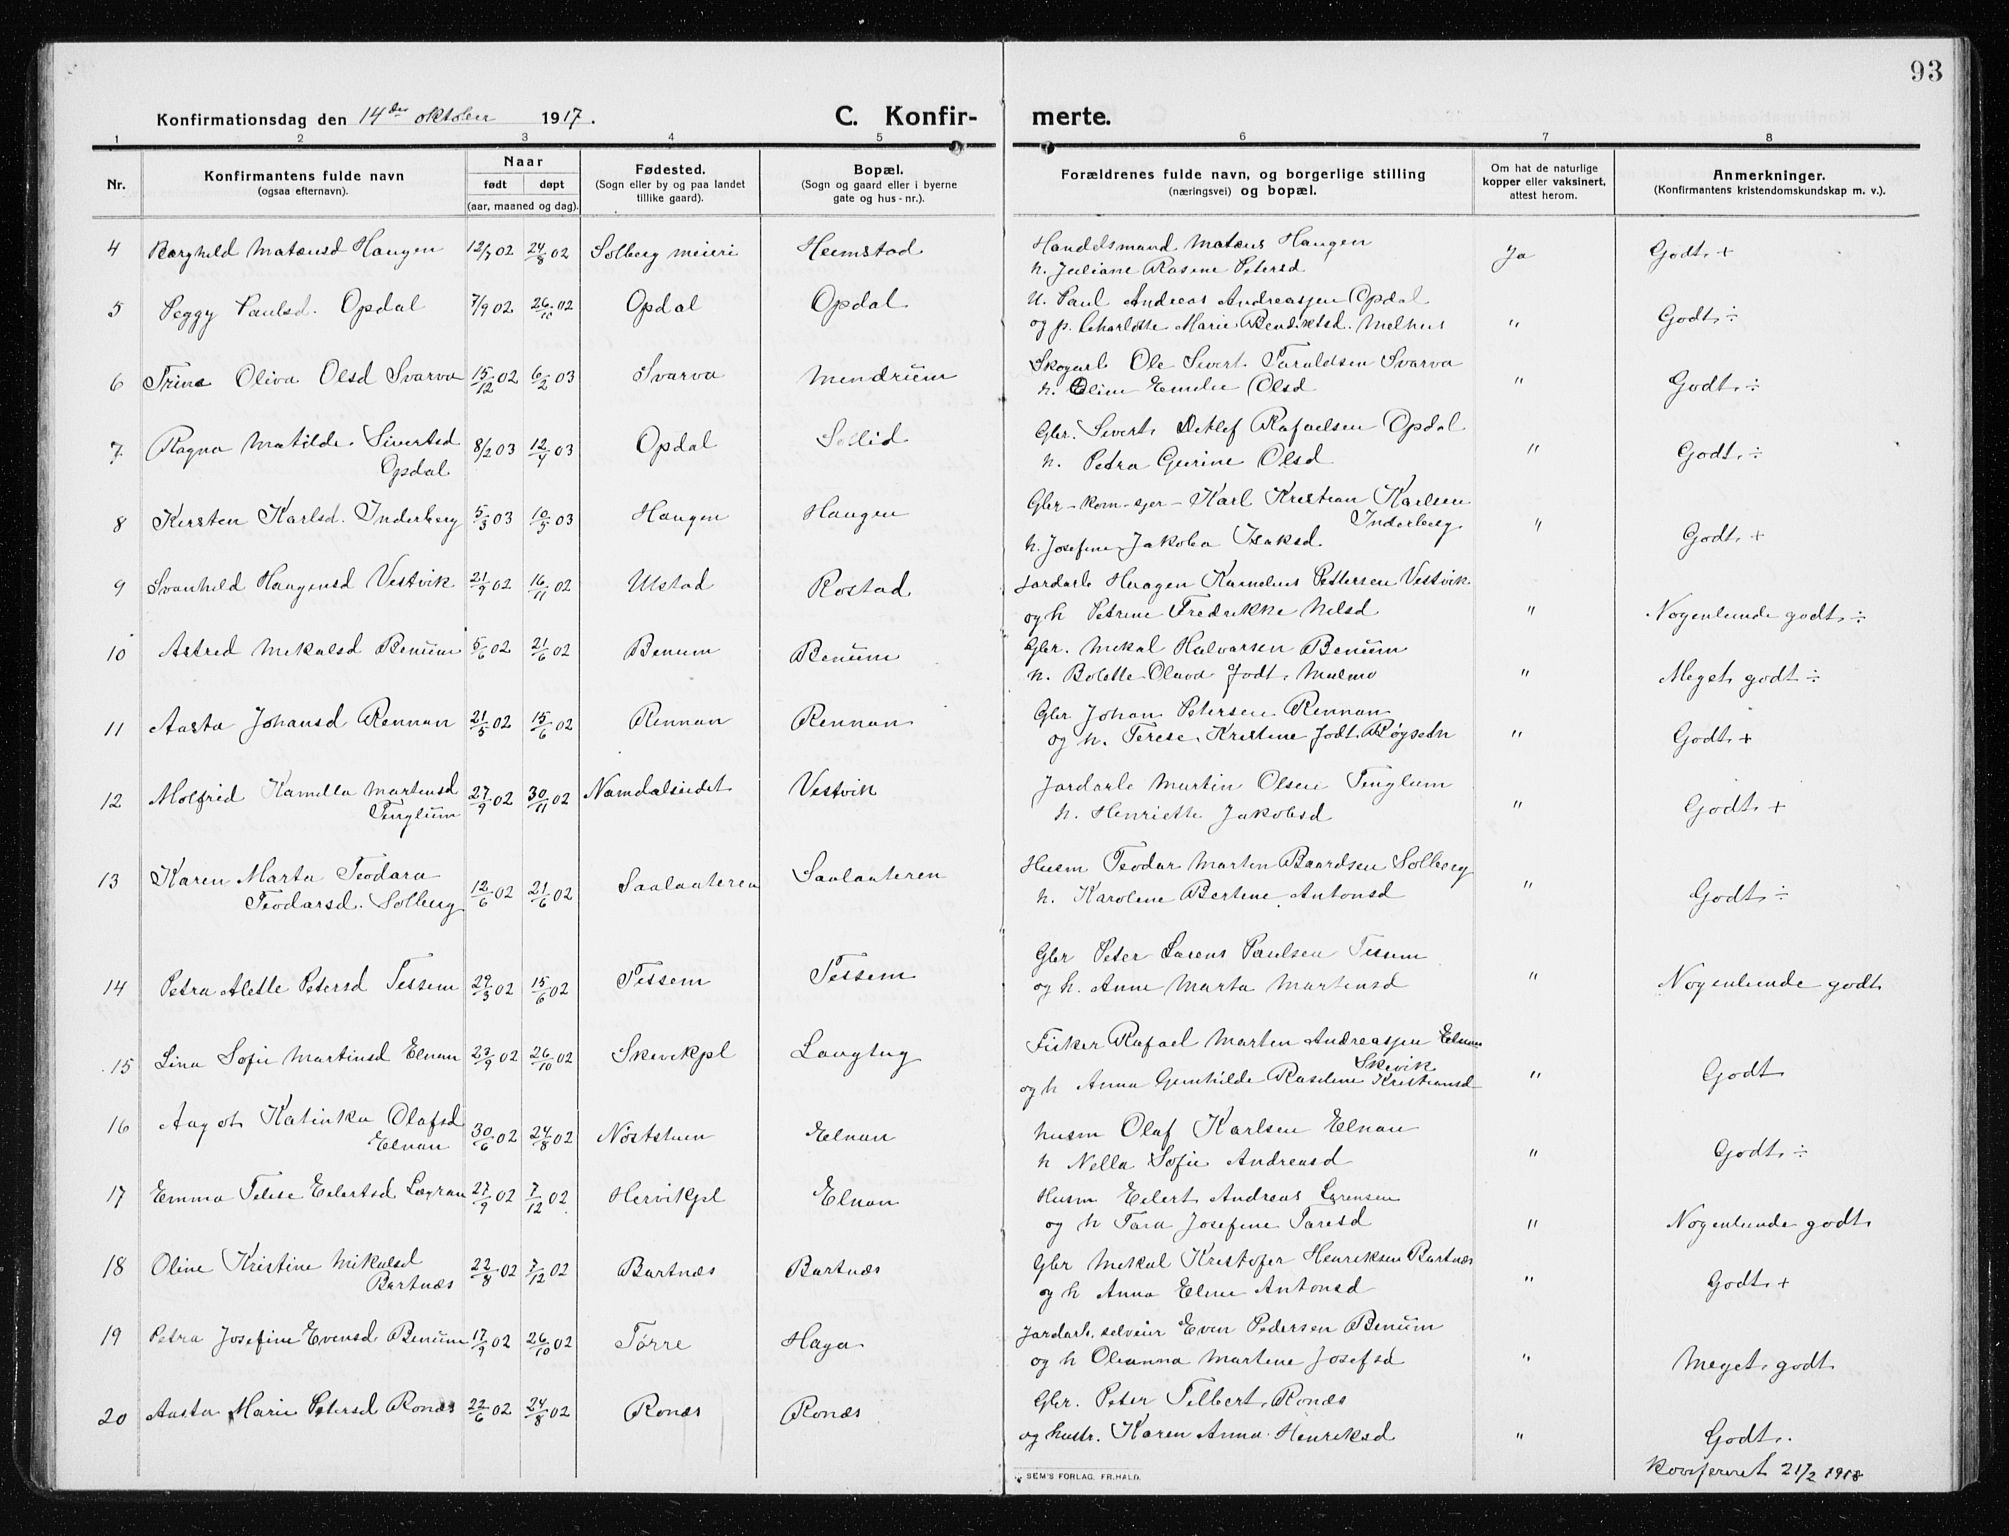 93
Konfirmationsdag den 14de oktober 1917.
C. Konfir-
merte.
1 2 3 4 5 6 7 8
Nr.
Konfirmantens fulde navn
(ogsaa efternavn).
Naar
født døpt
(aar, maaned og dag).
Fødested.
(Sogn eller by og paa landet
tillike gaard).
Bopæl.
(Sogn og gaard eller i byerne
gate og hus-nr.).
Forældrenes fulde navn, og borgerlige stilling
(næringsvei) og bopæl.
Om hat de naturlige
kopper eller vaksinert,
attest herom.
Anmerkninger.
(Konfirmantens kristendomskundskap m. v.).
4 Borghild Matæusd Haugen 12/7 02 24/8 02 Solberg meieri Heimstad Handelsmand Matæus Haugen Ja Godt. +
h. Juliane Rasine Petersd
5 Peggy Paulsd. Opdal 7/9 02 26/10 02 Opdal Opdal U. Paul Andreas Andreassen Opdal
og p. Charlotte Marie Benediktsd. Melhus " Godt ÷
6 Trine Oliva Olsd Svarva 15/12 02 6/2 03 Svarva Mendrum Skogarb Ole Sivert Taraldsen Svarva
h. Eline Emelie Olsd " Godt. ÷
7 Ragna Matilde Sivertsd 8/2 03 12/4 03 Opdal Sollid Gbr. Sivert Detlef Rafaelsen Opdal
Opdal h. Petra Gurine Olsd " Godt. ÷
8 Kirsten Karlsd. Inderberg 5/3 03 10/5 03 Haugen Haugen Gbr - kom - sjer - Karl Kristian Karlsen
Inderberg
h. Josefine Jakoba Isaksd " Godt. +
9 Svanhild Haagensd Vestvik 21/9 02 16/11 02 Ulstad Rostad Jordarb Haagen Kornelius Pettersen Vestvik
og h Petrine Fredrikke Nilsd " Nogenlunde godt. ÷
10 Astrid Mikalsd Benum 5/6 02 21/6 02 Benum Benum Gbr. Mikal Halvorsen Benum
h. Bolette Olava født Malmo " Meget godt ÷
11 Aasta Johansd Rennan 21/5 02 15/6 02 Rennan Rennan Gbr Johan Petersen Rennan
og h. Terese Kristine født Røysetn " Godt +
12 Molfrid Kamilla Martinsd 27/9 02 30/11 02 Namdalseidet Vestvik Jordarb Martin Olsen Tinglum
Tinglum h. Henriette Jakobsd " Godt. +
13 Karen Marta Teodora 12/6 02 21/6 02 Saalaateren Saalaateren Husm Teodor Martin Baardsen Solberg
Teodorsd. Solberg h. Karoline Bertine Antonsd " Godt ÷
14 Petra Alette Petersd Tessem 29/3 02 15/6 02 Tessem Tessem Gbr Peter Lorens Paulsen Tessem
og h. Anne Marta Martinsd " Nogenlunde godt
15 Lina Sofie Martinsd Elnan 27/9 02 26/10 02 Skevikpl Langtug Fisker Rafael Martin Andreassen Elnan
Skevik
og h Anna Gunhilde Raseline Kristiansd " Godt
16 Aagot Katinka Olafsd 30/6 02 24/8 02 Nøststuen Elnan husm Olaf Karlsen Elnan
Elnan h Nella Sofie Andreasd " Godt ÷
17 Emma Telise Eilertsd Løgran 27/9 02 7/12 02 Hervikpl Elnan Husm Eilert Andreas Lorensen
og h Tara Josefine Taresd " Nogenlunde godt
18 Oline Kristine Mikalsd 22/8 02 7/12 02 Bartnæs Bartnæs Gbr Mikal Kristofer Henriksen Bartnæs
Bartnæs og h Anna Eline Antonsd " Godt +
19 Petra Josefine Evensd Benum 17/9 02 26/10 02 Tørre Haga Jordarb. selveier Even Pedersen Benum
og h Oleanna Martine Josefsd " Meget godt
20 Aasta Marie Petersd Ronæs 22/6 02 24/8 02 Ronæs Ronæs Gbr. Peter Telbert Ronæs
og hustr. Karen Anna Henriksd " Godt.
21/2 1918
SEM'S FORLAG, FR.HALD.